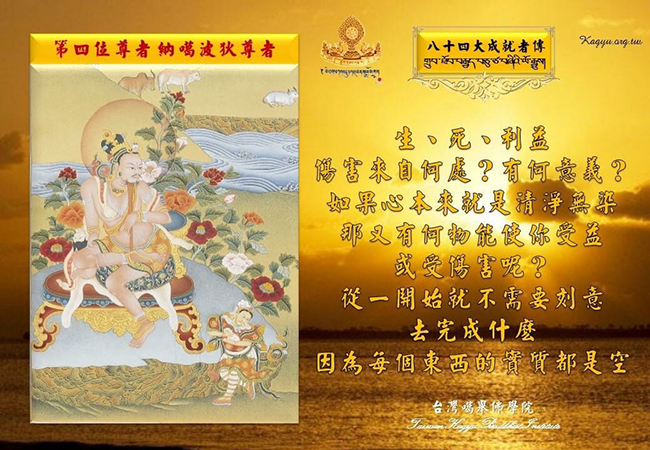 第四位尊者 納噶波狄尊者
八十四大成就者傳
Kagyu.org.tw
生、死、利益
傷害來自何處？有何意義？
如果心本來就是清淨無染
那又有何物能使你受益
或受傷害呢？
從一開始就不需要刻意
去完成什麼
因為每個東西的實質都是空
台灣噶舉佛學院
Taiwan Kagyu Buddhist Institute